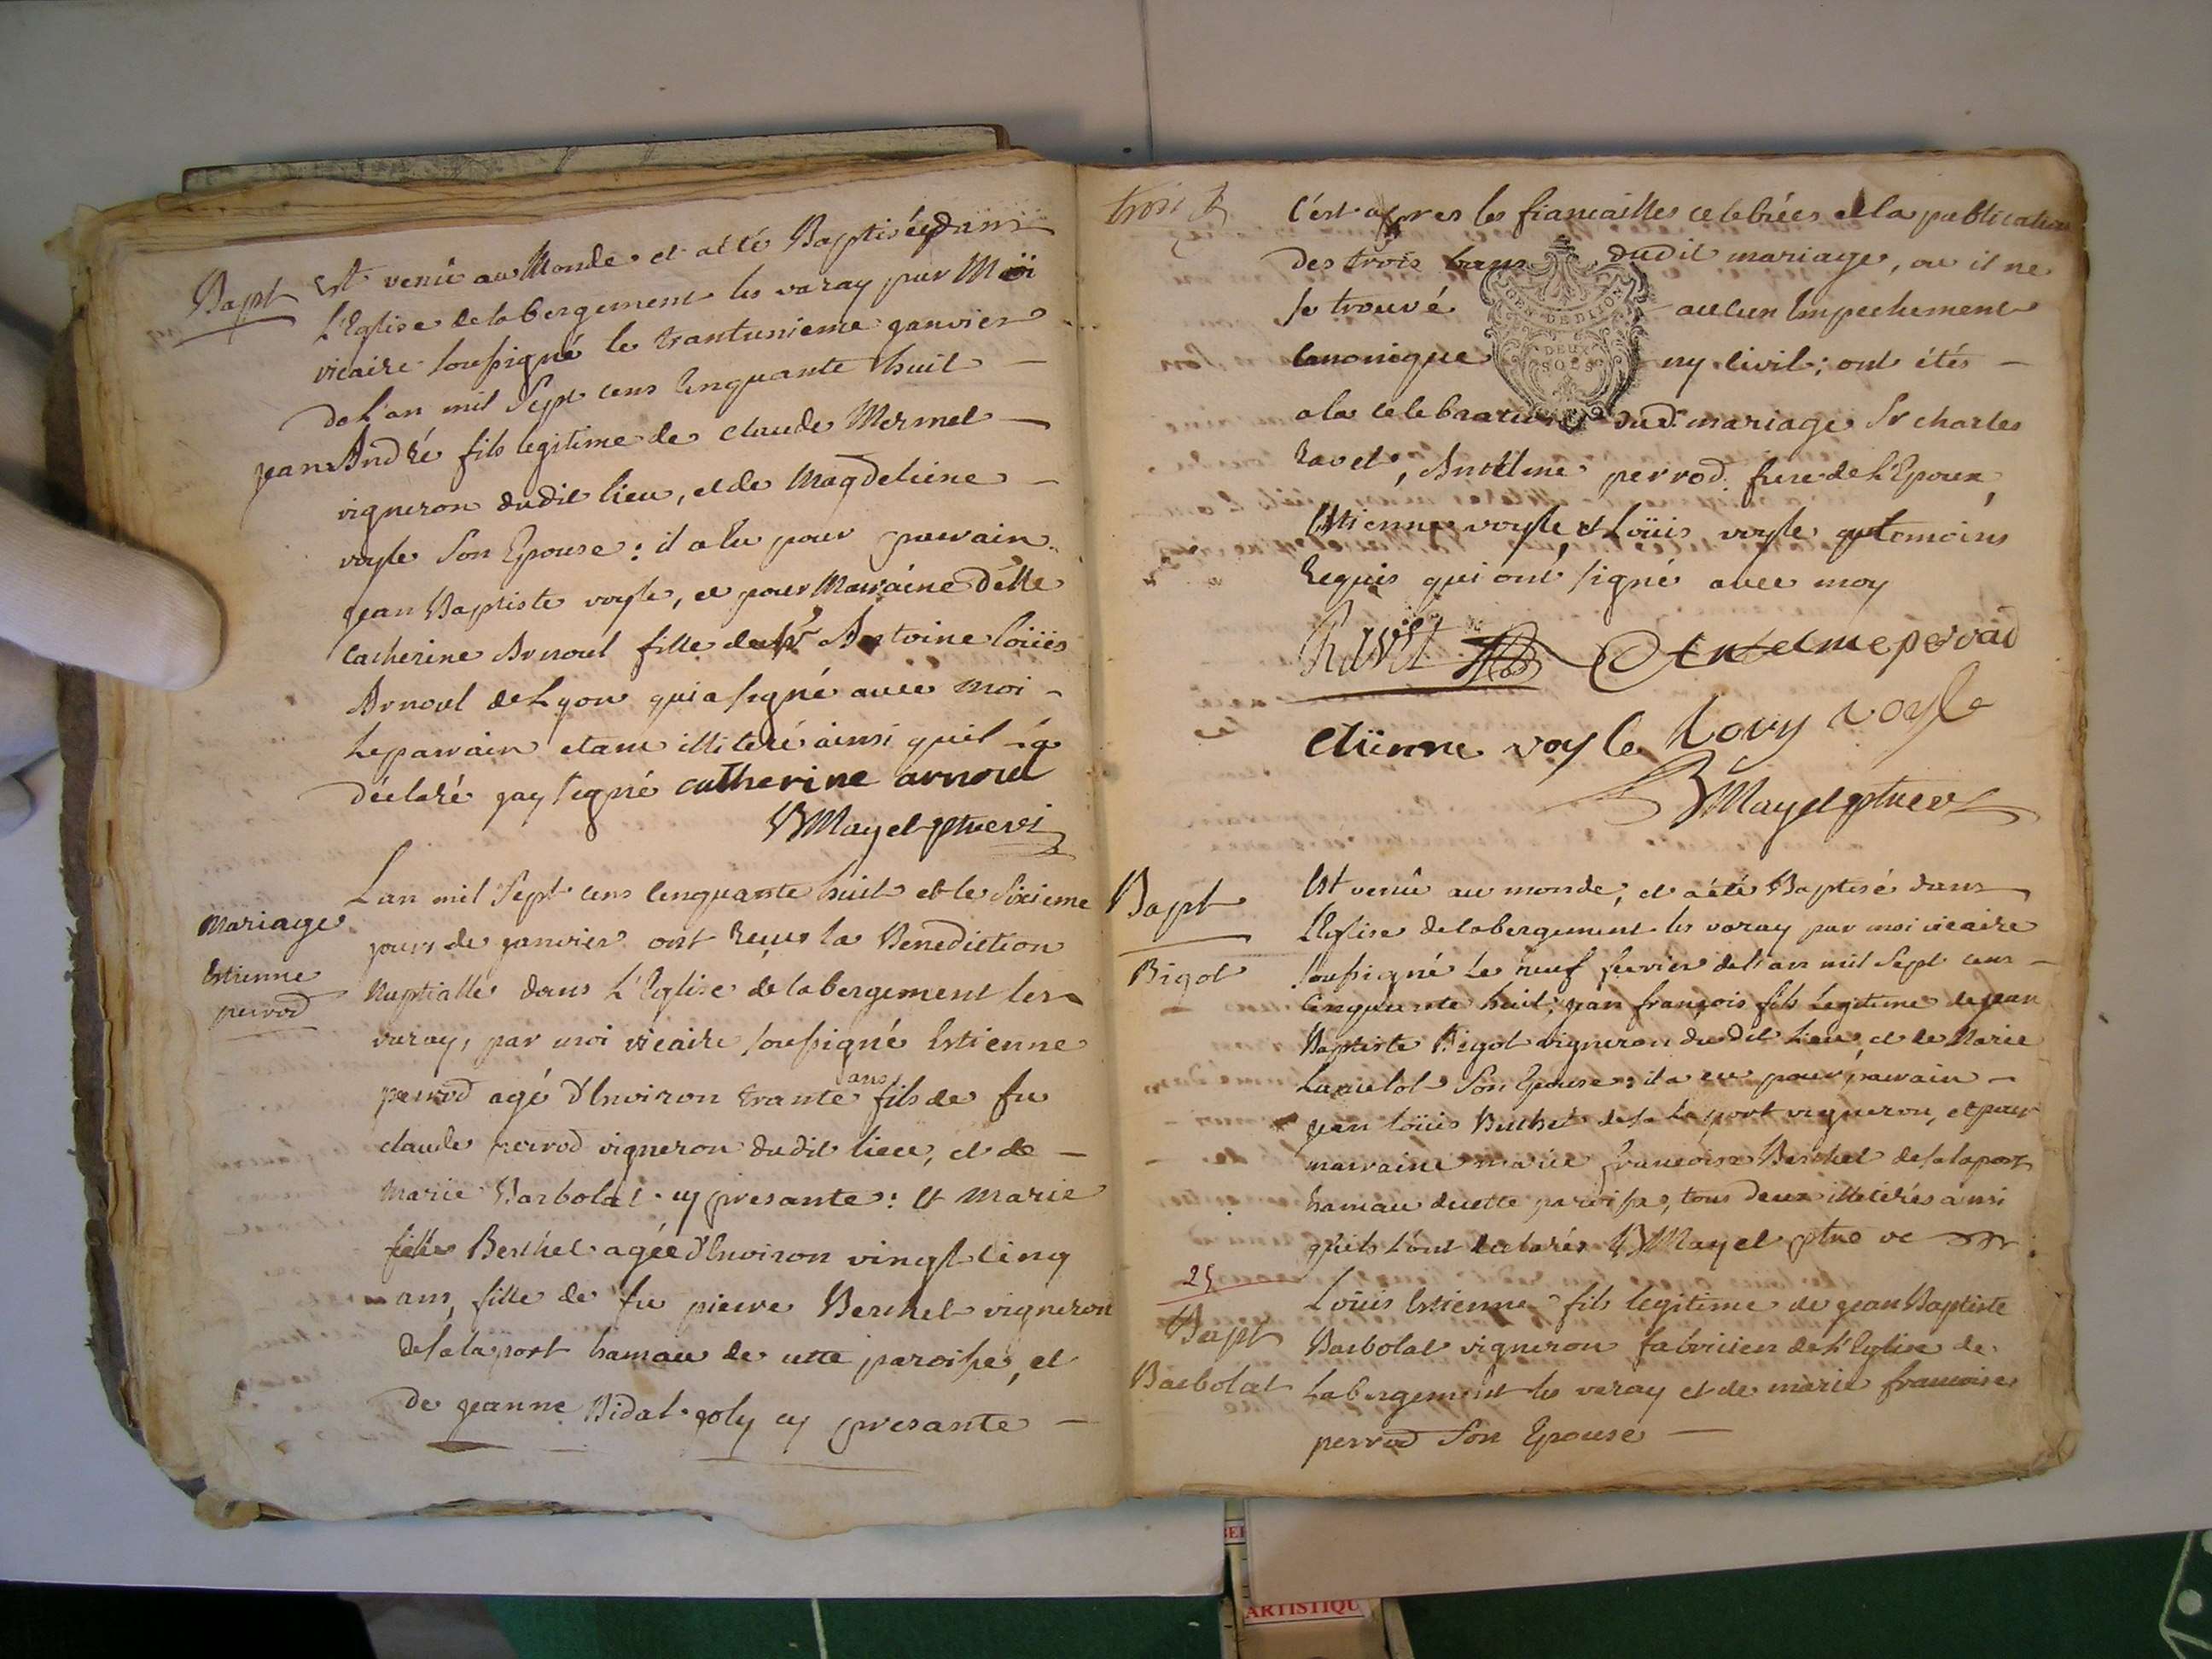 Bapt
Est venû au Monde et a été Baptisé dans
L'Eglise delabergement les varay par Moï
vicaire soussigné le trantunieme ganvier
de L'an mil Sept cens Cenquante huit —
jean André fils legitime de claude Mermet —
vigneron dudit lieu, et de Magdeleine —
voyle Son Epouse : il a eu pour parrain
jean Baptiste voyle, et pour Marraine delle
Catherine Arnoul fille de Sr Antoine loüis
Arnoul de Lyon qui a signé avec moi -
Le parrain etant illiteré ainsi quil -a
déclaré jay signé catherine arnoul
Mayet ptre vi
Mariage
Estienne
perrod
L'an mil Sept cens Cenquante huit et le Sixieme
jours de janvier ont Reçus la Benediction
Nuptialle dans L'Eglise de labergement les
varay, par moi vicaire soussigné Estienne
perrod agé d'Environ trante ans fils de fu
claude perrod vigneron dudit lieu, et de —
Marie Barbolat cy presante : Et Marie
Berthet agée d'Environ vingt cinq
ans, fille de fu pierre Berthet vigneron
de salaport hamau de cette paroisse, et
de jeanne Bidal joly cy presante —
trois
C'est apres les fiancailles celebrées et la publication
Des trois bans dudit mariage, ou il ne
se trouvé aucun Empechement
Canonique ny Civil ; ont étés —
GEN. DE DIJON
DEUX
SOLS
a la celebration dud. mariage Sr charles
Ravet, Antelme perrod frere de L'Epoux,
Estienne voyle, et Loüis voyle temoins
Requis qui ont signé avec moy
Ravet Antelme perrod
etiienne voyle Lovy voyle
Mayet ptre
Bapt
Bigot
Est venû au monde, et a été Baptisé dans
L'Eglise delabergement les varay par moi vicaire
soussigné Le neuf fevrier de l'an mil Sept cens —
Cenquante huit ; jean françois fils Legitime de jean
Baptiste Bigot vigneron dudit Lieu, et de Marie
Lancelot Son Epouse : il a eu pour parrain —
jean loüis Berthet de sa La port vigneron, et pour
marraine marie francoise Berthet de salaport
hamau de cette paroisse, tous deux illiterés ainsi
quils l'ont declarés Mayet ptre
25
Bapt
Barbolat
Loüis Estienne fils legitime de jean Baptiste
Barbolat vigneron fabricien de L'Eglise de
Labergement les varay et de marie francoise
perrod Son Epouse —
ARTISTIQU